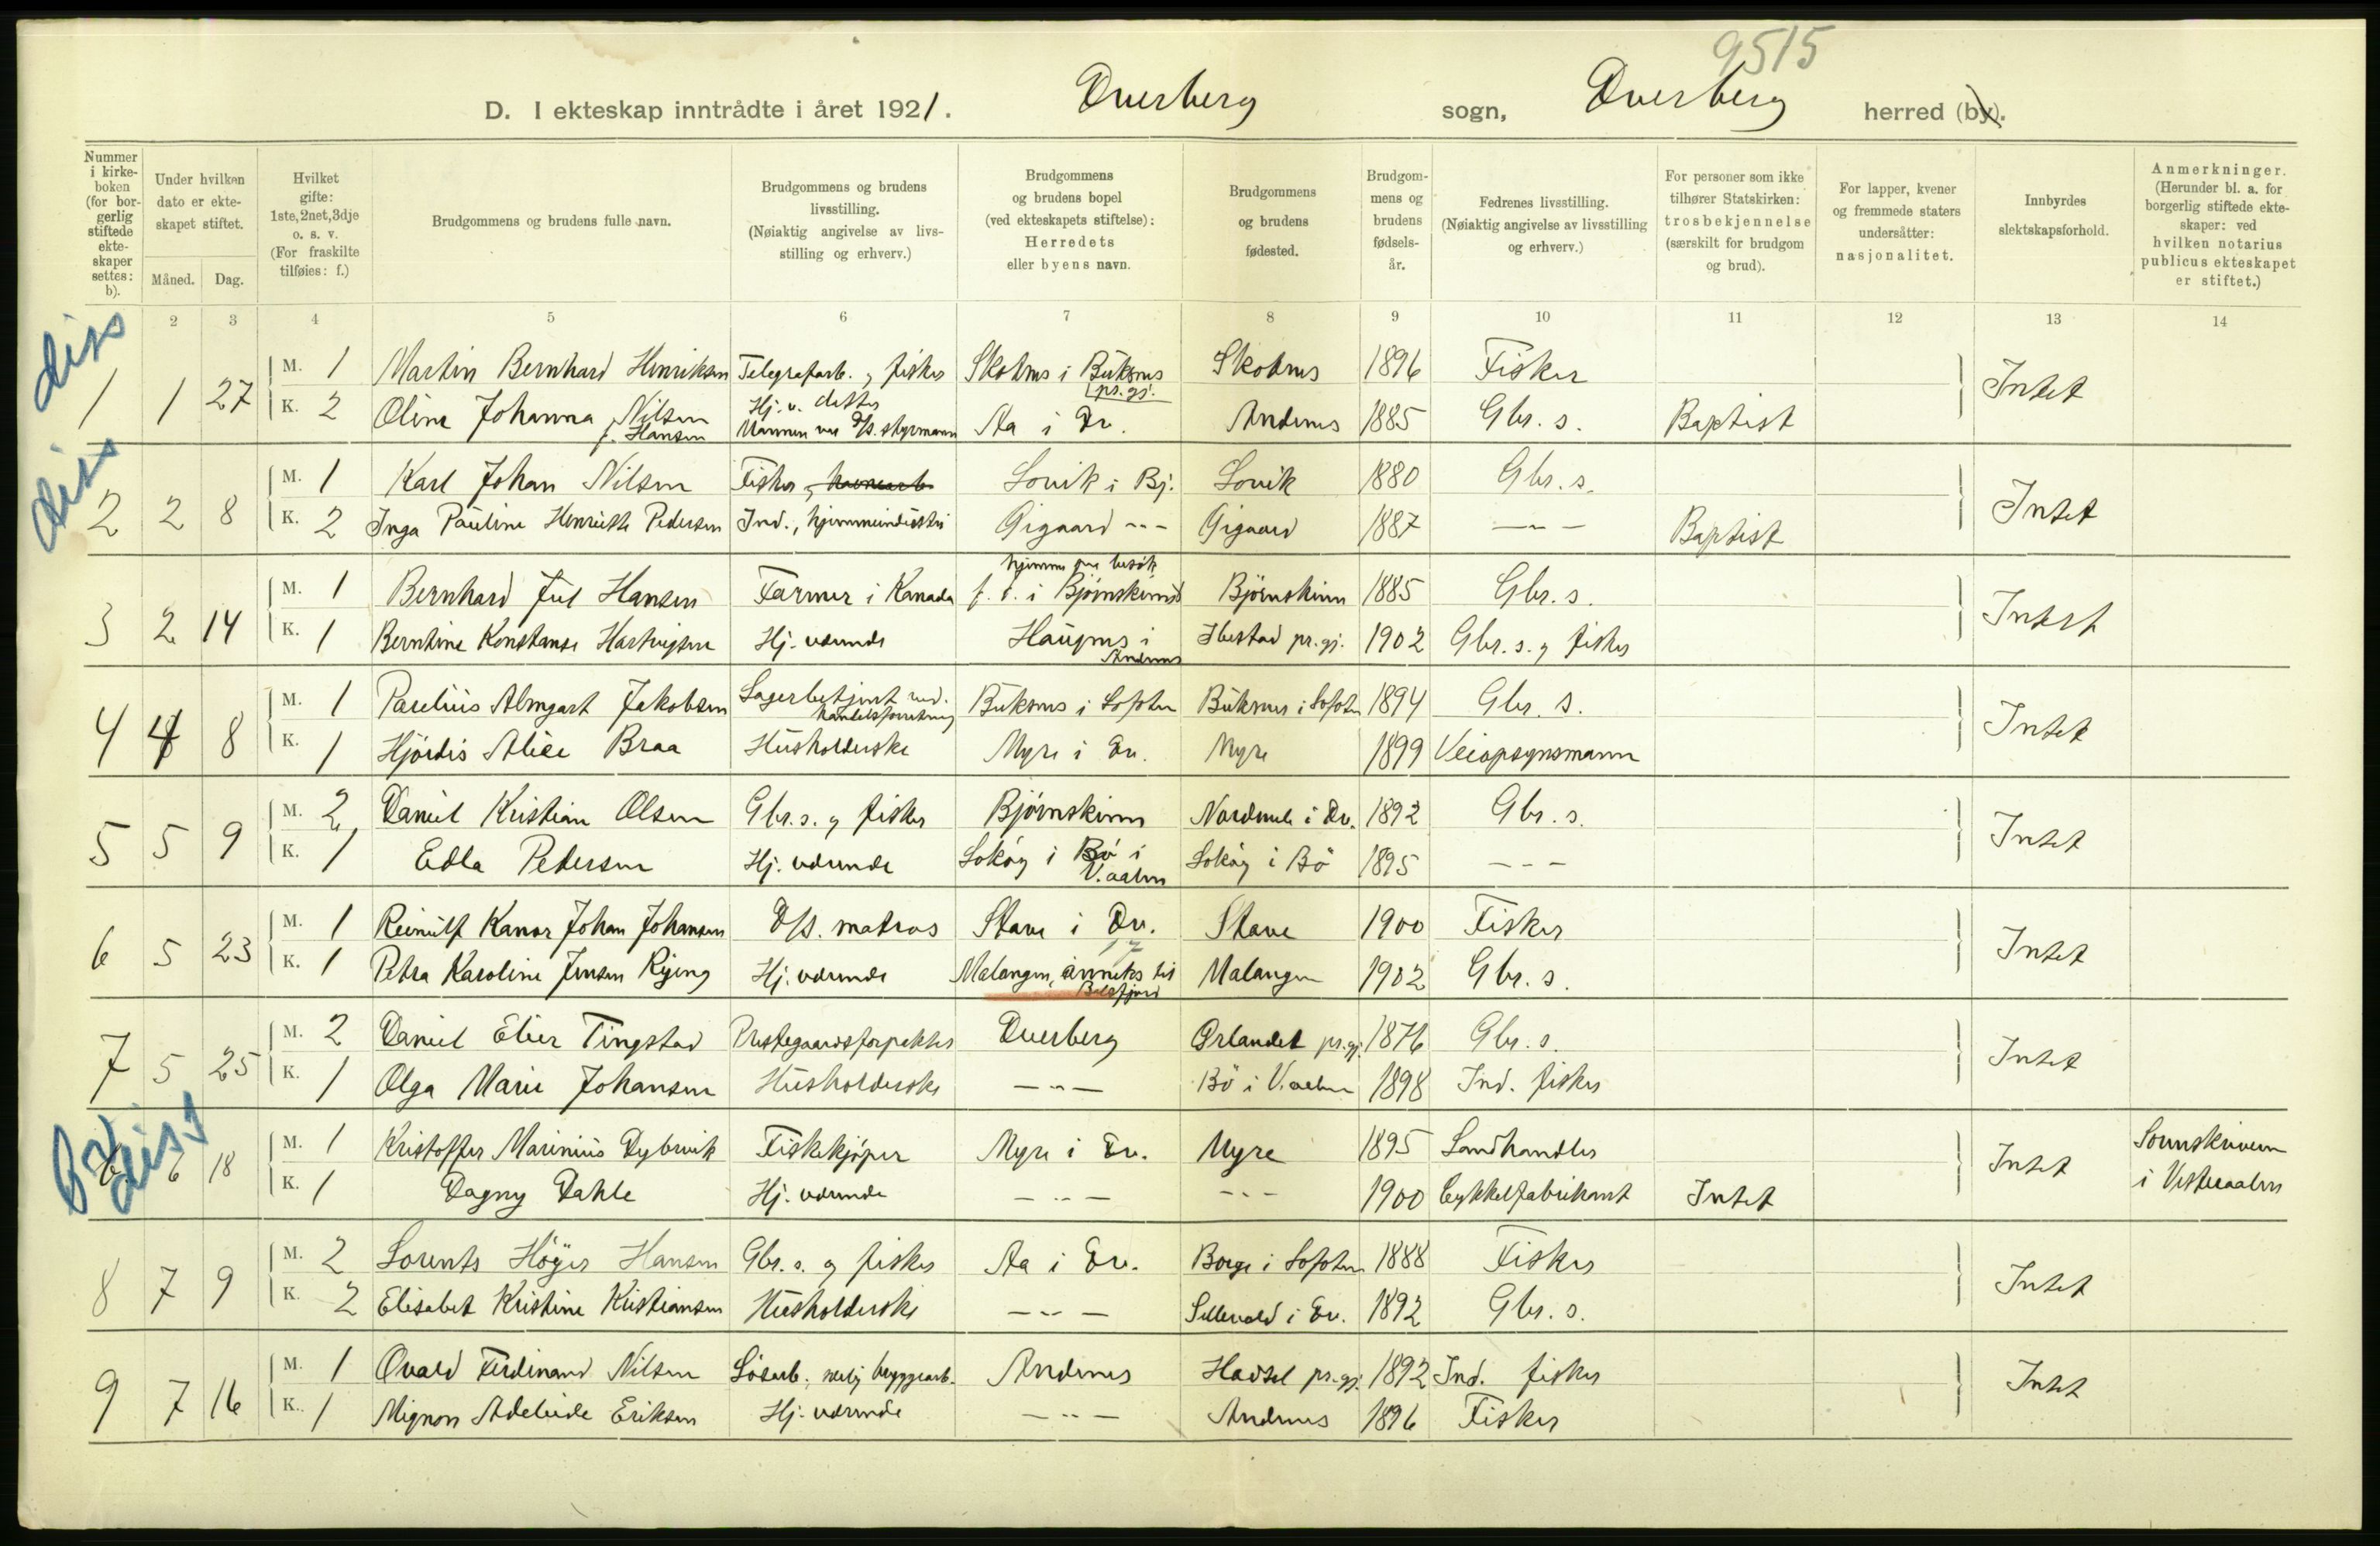 9515
D. I ekteskap inntrådte i året 1921. Dverberg sogn, Dverberg herred (by).
Nummer i kirke-boken (for bor-gerlig stiftede ekte-skaper settes: b).
Under hvilken dato er ekte-skapet stiftet.
Måned. Dag.
Hvilket gifte: 1ste, 2net, 3dje o. s. v. (For fraskilte tilføies: f.)
Brudgommens og brudens fulle navn.
Brudgommens og brudens livsstilling. (Nøiaktig angivelse av livs-stilling og erhverv.)
Brudgommens og brudens bopel (ved ekteskapets stiftelse): Herredets eller byens navn.
Brudgommens og brudens fødested.
Brudgom-mens og brudens fødsels-år.
Fedrenes livsstilling. (Nøiaktig angivelse av livsstilling og erhverv.)
For personer som ikke tilhører Statskirken: trosbekjennelse (særskilt for brudgom og brud).
For lapper, kvener og fremmede staters undersåtter: nasjonalitet.
Innbyrdes slektskapsforhold.
Anmerkninger. (Herunder bl. a. for borgerlig stiftede ekte-skaper: ved hvilken notarius publicus ekteskapet er stiftet.)
2 3 4 5 6 7 8 9 10 11 12 13 14
diss
1 1 27 M. 1 Martin Bernhard Henriksen Telegrafarb. og fisker Skotnes i Buksnes pr.gj. Skotnes 1896 Fisker Intet
K. 2 Oline Johanna Nilsen f. Hansen Hj. v. datter Mannen var D/S. styrmann Aa i Dv. Andenes 1885 Gbr. s. Baptist
diss
2 2 8 M. 1 Karl Johan Nilsen Fisker, havnearb. Lovik i Bj. Lovik 1880 Gbr. s. Intet
K. 2 Inga Pauline Henriette Pedersen Ind., hjemmeindustri Gigaard -"- Gigaard 1887 -"- Baptist
3 2 14 M. 1 Bernhard Jul Hansen Farmer i Kanada hjemme paa besøk f. t. i Bjørnskinn Bjørnskinn 1885 Gbr. s. Intet
K. 1 Berntine Konstanse Hartvigsen Hj. værende Haugnes i Andenes Ibestad pr.gj. 1902 Gbr. s. og fisker
4 4 8 M. 1 Paulius Almgart Jakobsen Lagerbetjent ved handelsforretning Buksnes i Lofoten Buksnes i Lofoten 1894 Gbr. s. Intet
K. 1 Hjørdis Alice Braa Husholderske Myre i Dv. Myre 1899 Veiopsynsmann
5 5 9 M. 2 Daniel Kristian Olsen Gbr. s. og fisker Bjørnskinn Nordmele i Dv. 1892 Gbr. s. Intet
K. 1 Edla Petersen Hj. værende Lokøy i Bø i V.aalen Lokøy i Bø 1895 -"-
6 5 23 M. 1 Reinulf Kanor Johan Johansen D/S. matros Stave i Dv. Stave 1900 Fisker Intet
K. 1 Petra Karoline Jensen Ryeng Hj. værende Malangen, anneks til Balsfjord Malangen 1902 Gbr. s.
7 5 25 M. 2 Daniel Elier Tingstad Prestegaardsforpakter Dverberg Ørlandet pr.gj. 1876 Gbr. s. Intet
K. 1 Olga Marie Johansen Husholderske -"- Bø i V.aalen 1898 Ind. fisker
diss
6 18 M. 1 Kristoffer Marinius Dybvik Fiskekjøper Myre i Dv. Myre 1895 Landhandler Intet Sorenskriveren
K. 1 Dagny Dahle Hj. værende -"- -"- 1900 Cykkelfabrikant Intet i Vesteraalen
8 7 9 M. 2 Lorents Høyer Hansen Gbr. s. og fisker Aa i Dv. Borge i Lofoten 1888 Fisker Intet
K. 2 Elisabet Kristine Kristiansen Husholderske -"- Sellevold i Dv. 1892 Gbr. s.
9 7 16 M. 1 Ovald Ferdinand Nilsen Løsarb., bryggearb. Andenes Hadsel pr.gj. 1892 Ind. fisker Intet
K. 1 Mignon Adeleide Eriksen Hj. værende -"- Andenes 1896 Fisker